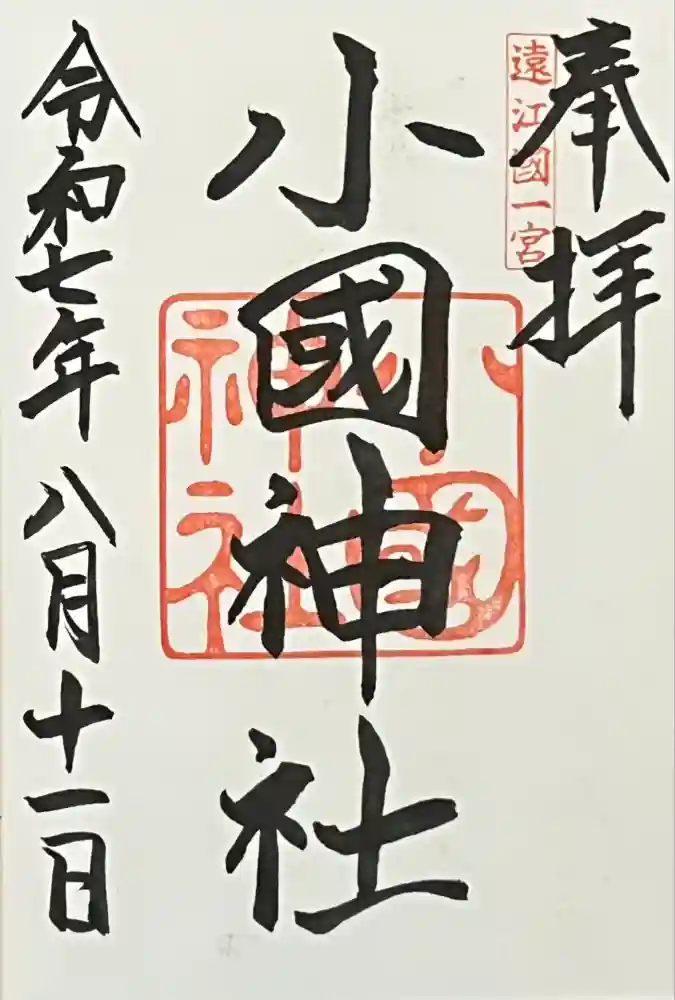 奉拝
遠江國一宮
小國神社
小國
神社
令和七年八月十一日